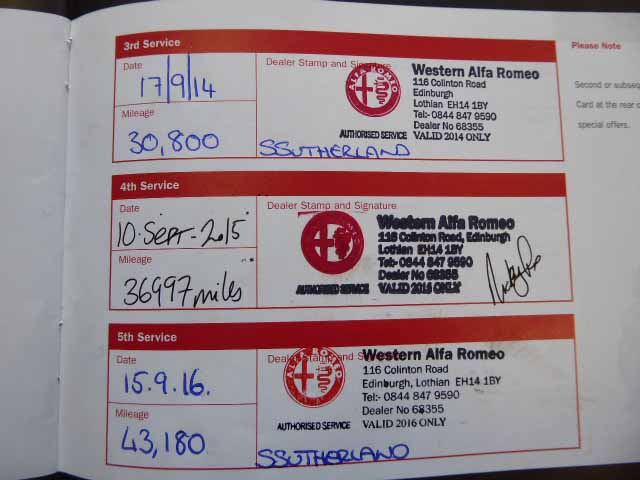 3rd Service
Please Note
Date
Dealer Stamp and Signature
17/9/14
ALFA ROMEO
Western Alfa Romeo
116 Colinton Road
Edinburgh
Lothian EH14 1BY
Tel:- 0844 847 9590
Dealer No 68355
AUTHORISED SERVICE VALID 2014 ONLY
Mileage
30,800
SSUTHERLAND
Second or subseq
Card at the rear o
special offers.
4th Service
Date
Dealer Stamp and Signature
10-SEPT-2015
Western Alfa Romeo
116 Colinton Road, Edinburgh
Lothian EH14 1BY
Tel:- 0844 847 9590
Dealer No 68355
AUTHORISED SERVICE VALID 2015 ONLY
Mileage
36997 miles
5th Service
Date
Dealer Stamp and S
15.9.16.
ALFA ROMEO
Western Alfa Romeo
116 Colinton Road
Edinburgh, Lothian EH14 1BY
Tel:- 0844 847 9590
Dealer No 68355
AUTHORISED SERVICE VALID 2016 ONLY
Mileage
43,180
SSUTHERLAND